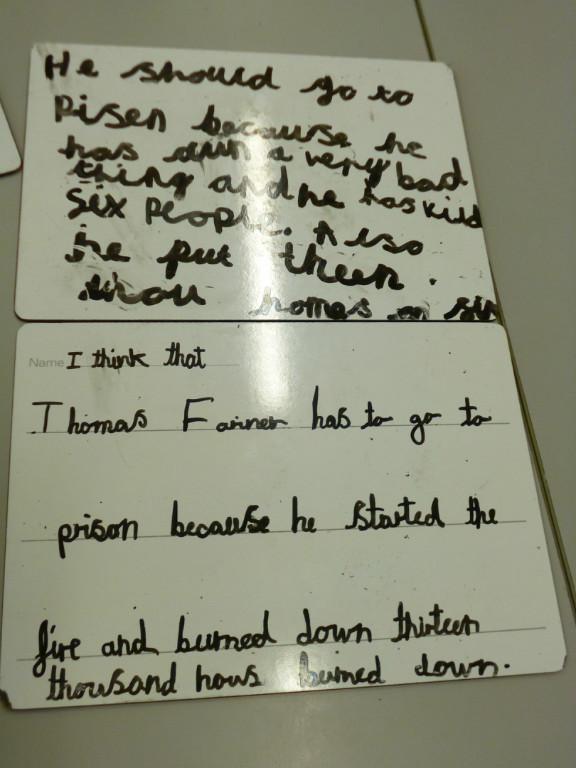 He should go to
Prisen because he
has dun a very bad
thing and he has kild
Six People. Also
he put theer
homes on
Name I think that
Thomas Farriner has to go to
prison because he started the
fire and burned down thirteen
thousand hows burned down.